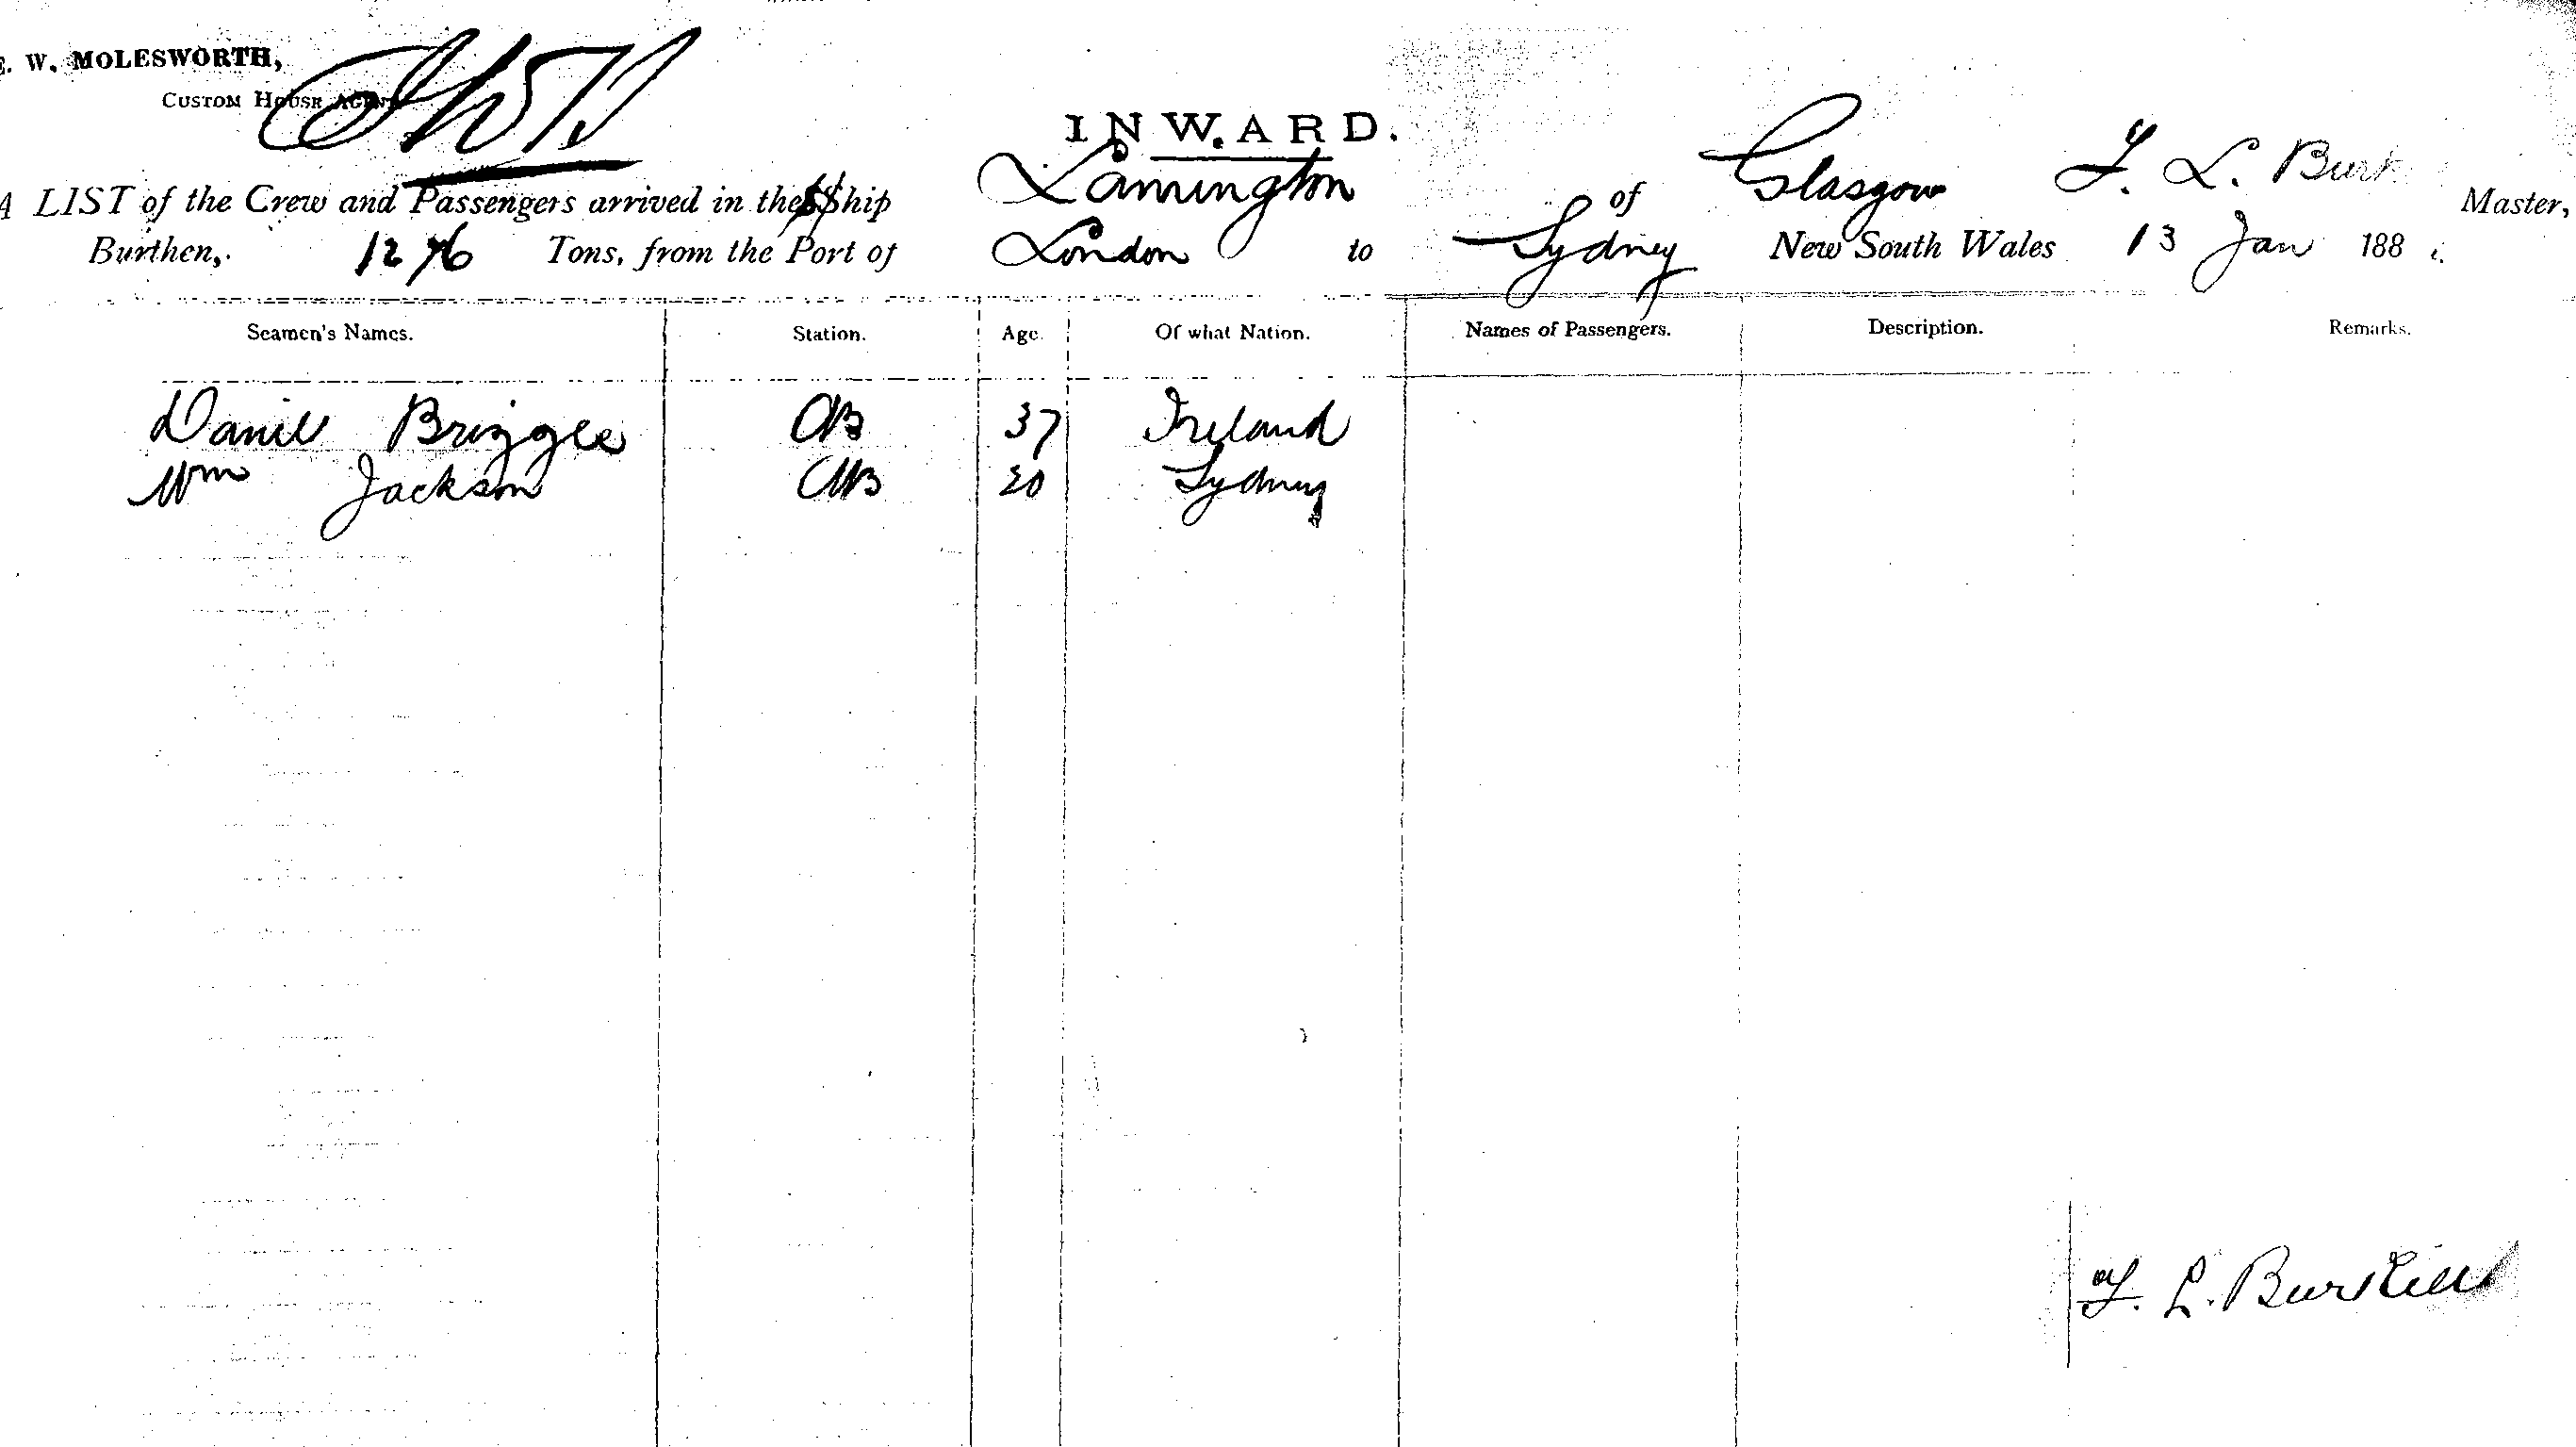 E. W. MOLESWORTH,
CUSTOM HOUSE AGENT
INWARD.
A LIST of the Crew and Passengers arrived in the SShip Lamington of Glasgow F. L. Burk Master,
Burthen, 1276 Tons, from the Port of London to Sydney New South Wales 13 Jan 188
Seamen's Names. Station. Age. Of what Nation. Names of Passengers. Description. Remarks.
Daniel AB 37 Ireland
Wm Jackson AB 20 Sydney
F. L. Burkill